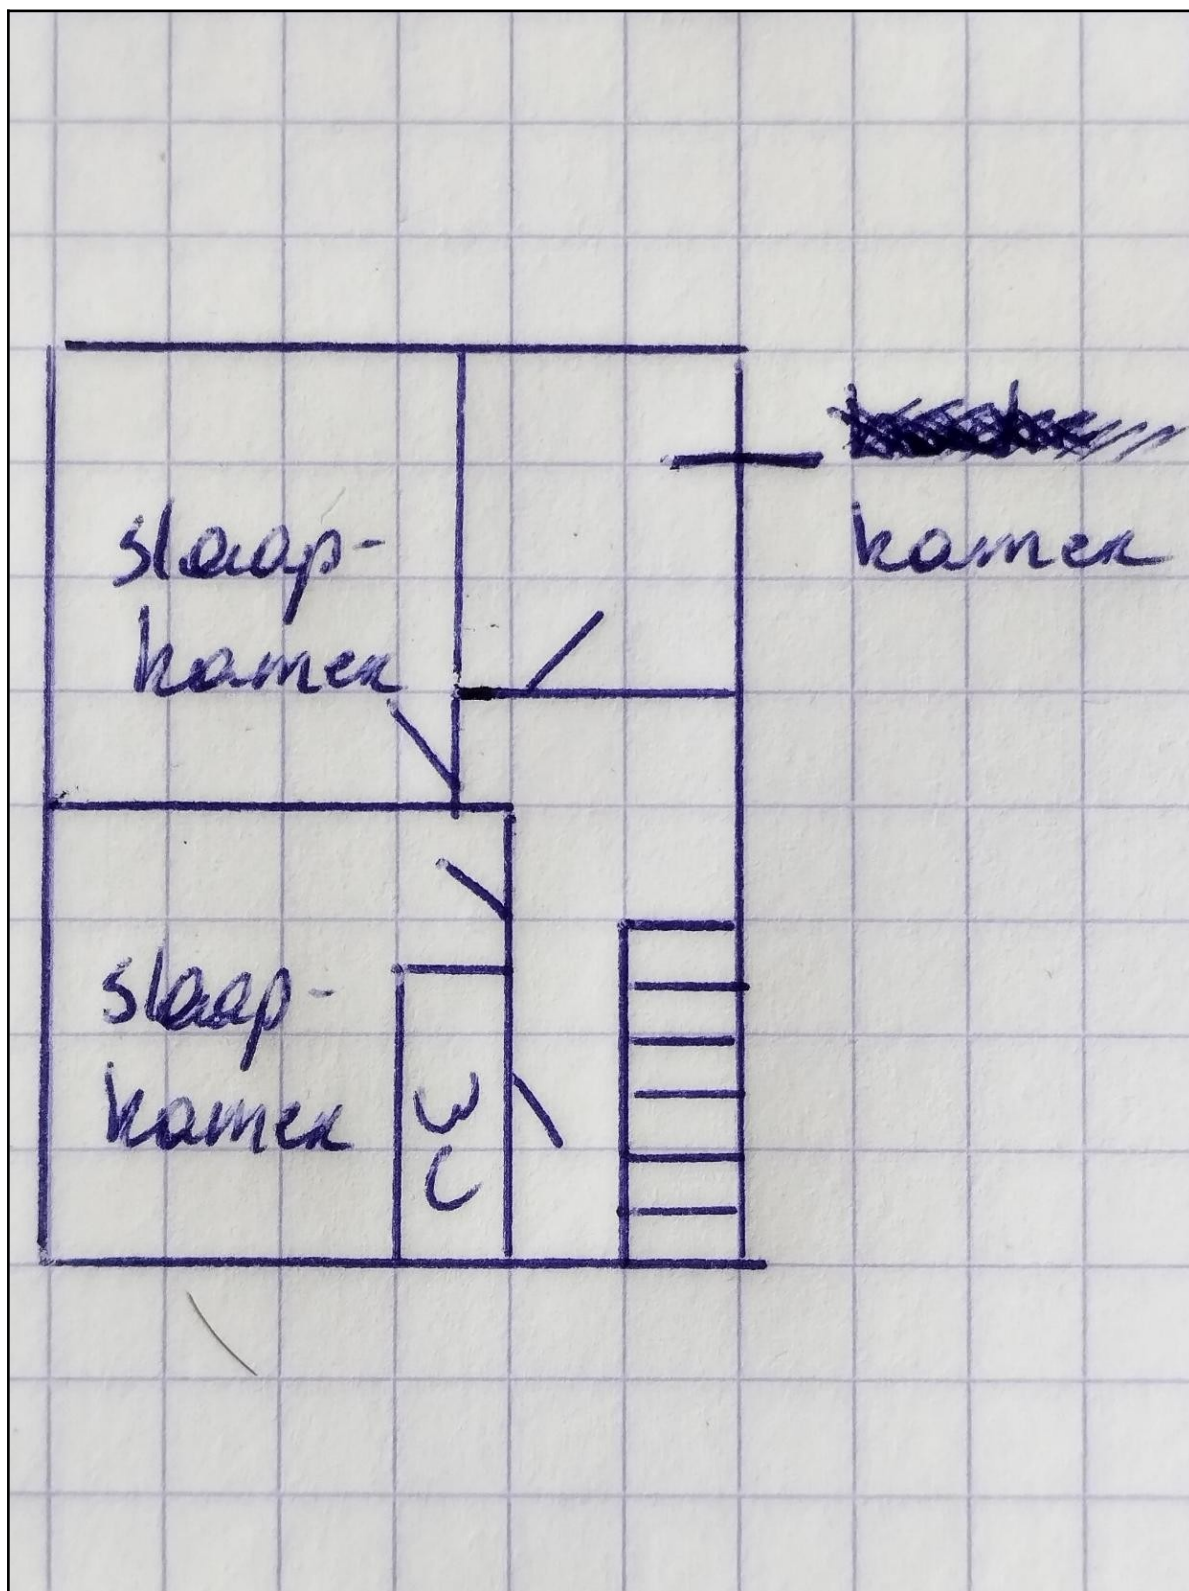 slaap-
kamer
kamer
slaap-
kamer
WC